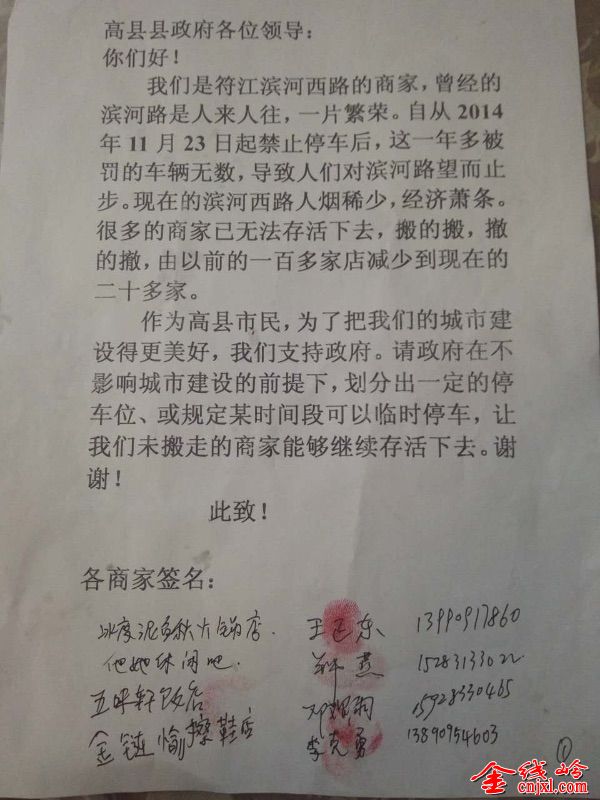 高县县政府各位领导：
你们好！
我们是符江滨河西路的商家，曾经的
滨河路是人来人往，一片繁荣。自从 2014
年 11 月 23 日起禁止停车后，这一年多被
罚的车辆无数，导致人们对滨河路望而止
步。现在的滨河西路人烟稀少，经济萧条。
很多的商家已无法存活下去，搬的搬，撤
的撤，由以前的一百多家店减少到现在的
二十多家。
作为高县市民，为了把我们的城市建
设得更美好，我们支持政府。请政府在不
影响城市建设的前提下，划分出一定的停
车位、或规定某时间段可以临时停车，让
我们未搬走的商家能够继续存活下去。谢
谢！
此致！
各商家签名：
火锅店. 13990917860
他她休闲吧. 燕 1528313302
轩饭店 15928330465
金链愉擦鞋店 李克勇 13890954603
①
金线岭
cnjxl.com